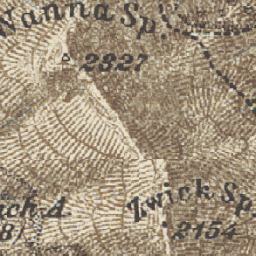 Wanna Sp.
2327
Zwick Sp.
ch.d.
2154
8)